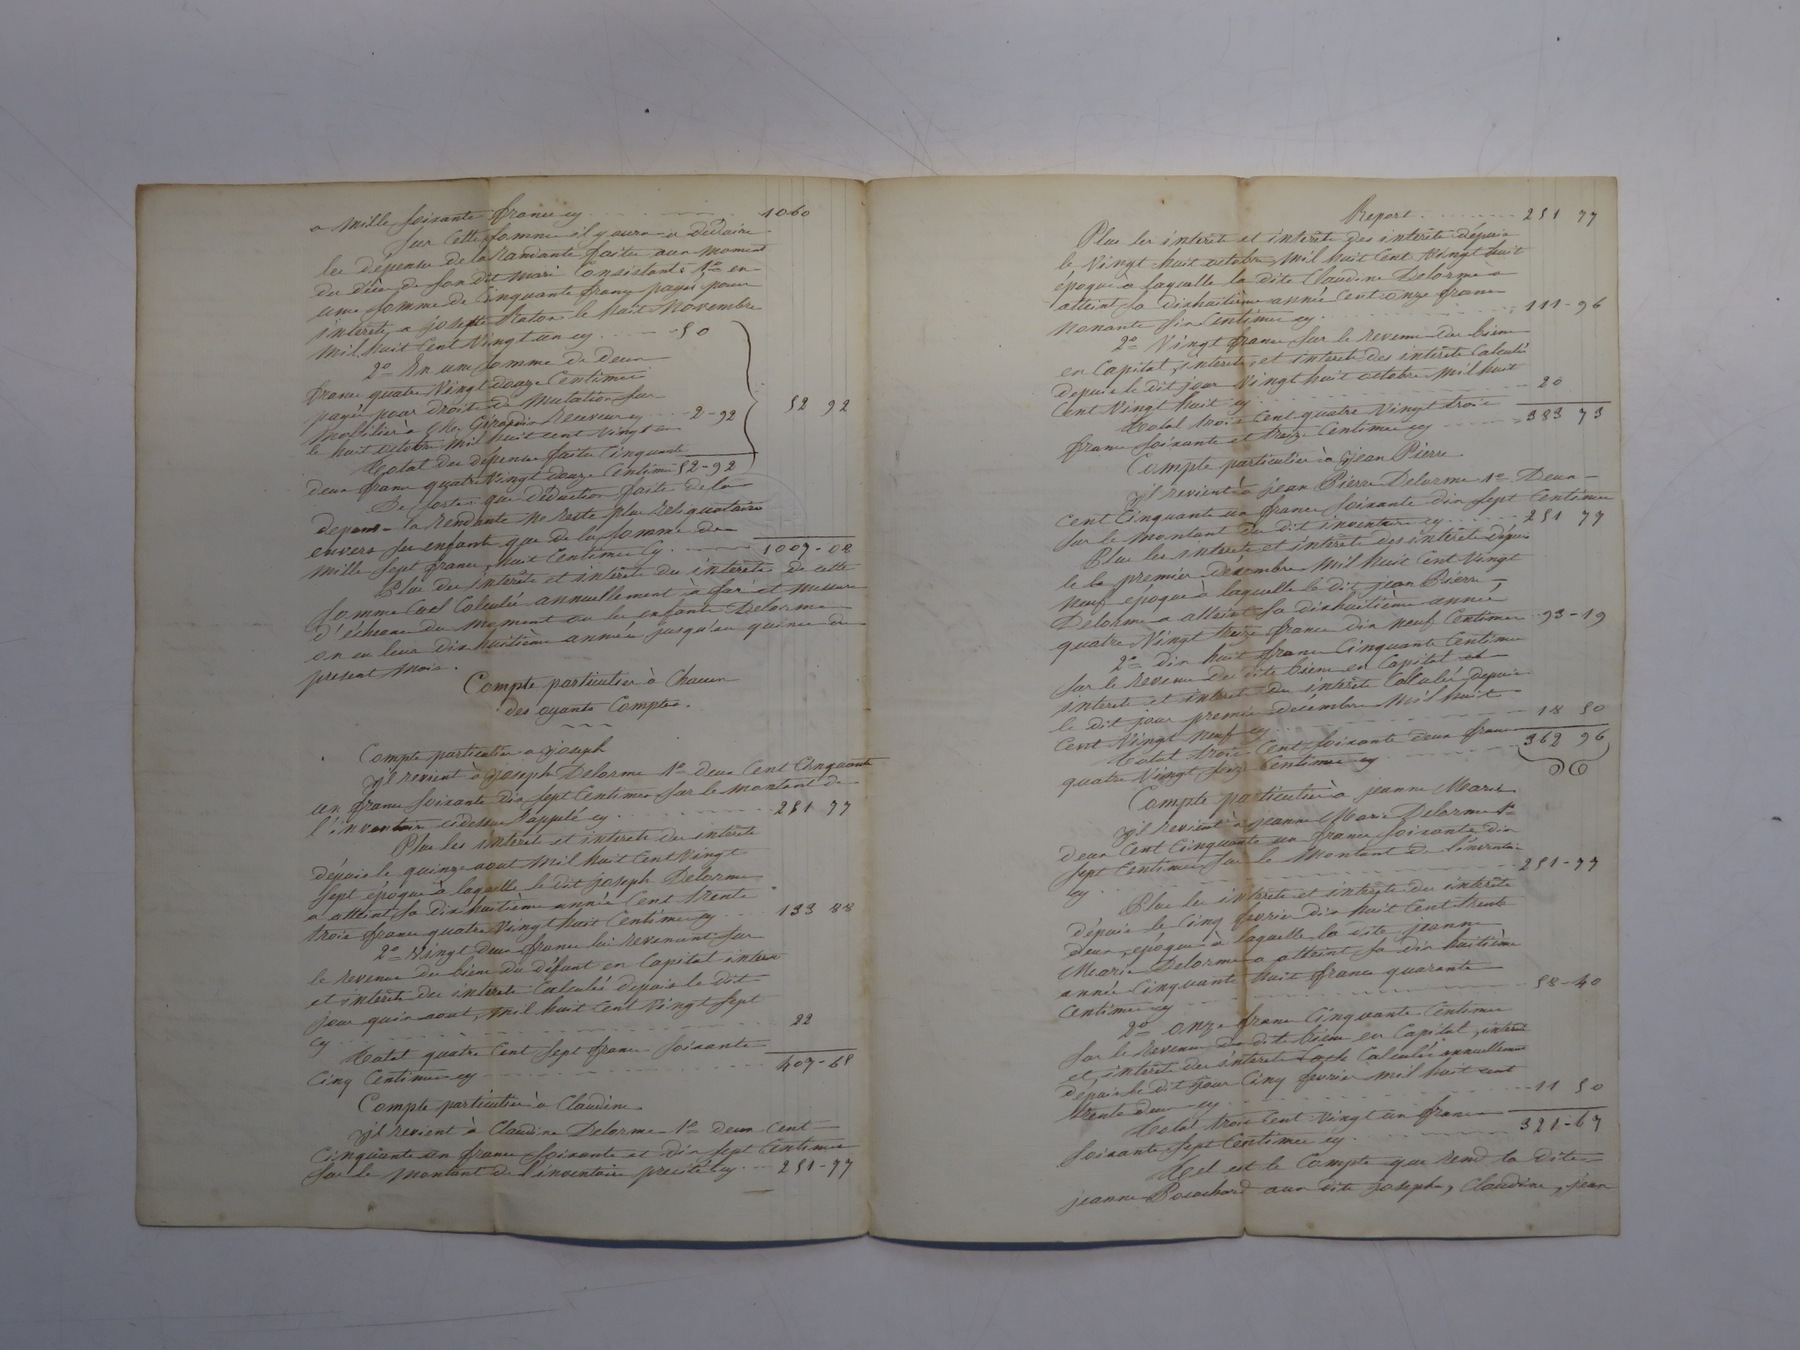 a Mille soixante francs cy 1060
Sur cette somme il y aura a déduire
les dépense de la Rendante faite au moment
du décès de son dit mari Consistants 1º en
une somme de Cinquante francs payés pour
interets a joseph le huit Novembre
mil huit Cent Vingt un cy 50
2º En une somme de deux
francs quatre Vingt douze Centimes
payés pour droits de Mutation sur
Mobilier à Receveur cy 2-92 52 92
le huit octobre Mil huit cent Vingt un
Total des dépense faite Cinquante
deux francs quatre Vingt douze Centimes 52-92
De sorte que déduction faite de la
depense la Rendante ne reste plus Reliquataire
envers ses enfants que de la somme de
Mille Sept francs, huit Centimes Cy 1007-08
Plus des interets et interets des interets de cette
somme Calculés annuellement à fur et mesure
d'échéance du moment ou les enfants Delorme
on eu leur dix huitième année jusqu'au quinze du
present mois.
Compte particulier à Chacun
des oyants Comptes.
Compte particulier a joseph
Il revient à joseph Delorme 1º deux Cent Cinquante
un francs soixante dix sept Centimes sur le montant de
l'inventaire cidessus Rappelé cy 251 77
Plus les interets et interets des interets
dépuis le quinze aout Mil huit Cent Vingt
Sept époque à laquelle le dit joseph Delorme
a atteint sa dix huitième année Cent trente
trois francs quatre Vingt huit Centimes cy 133 88
2º Vingt deux francs lui Revenant sur
le Revenu des biens du défunt en Capital interets
et interets des interets Calculés depuis le dit
jour quinze aout, mil huit Cent Vingt Sept
cy 22
Total quatre Cent Sept francs Soixante
Cinq Centimes cy 407-65
Compte particulier à Claudine
Il revient à Claudine Delorme 1º deux Cent
Cinquante un francs soixante et dix sept Centimes
sur le montant de l'inventaire précité Cy 251-77
Report 251 77
Plus les interets et interets des interets dépuis
le Vingt huit octobre, Mil huit Cent Vingt huit
époque à laquelle la dite Claudine Delorme a
atteint sa dixhuitième année Cent onze francs
Nonante Six Centimes cy 111-96
2º Vingt francs sur le Revenu des biens
en Capital, interets, et interets des interets Calculés
depuis le dit jour Vingt huit octobre Mil huit
Cent Vingt huit cy 20
Total trois Cent quatre Vingt trois
francs Soixante et treize Centimes cy 383 73
Compte particulier à jean Pierre
Il revient à jean Pierre Delorme 1º Deux
cent Cinquante un francs soixante dix sept Centimes
sur le montant du dit inventaire cy 251 77
Plus les interets et interets des interets dépuis
le premier décembre Mil huit Cent Vingt
Neuf époque à laquelle le dit jean Pierre
Delorme a atteint sa dixhuitième année
quatre Vingt treize francs dix neuf Centimes 93-19
2º dix huit francs Cinquante Centimes
sur le Revenu des dits biens en Capital et
interets et interets des interets Calculés depuis
le dit jour premier décembre Mil huit
Cent Vingt Neuf cy 18 50
Total trois Cent soixante deux francs 362 96
quatre Vingt seize Centimes cy
Compte particulier à jeanne Marie
Il revient à jeanne Marie Delorme 1º
deux Cent Cinquante un francs soixante dix
sept Centimes sur le Montant de l'inventaire
cy 251-77
Plus les interets et interets des interets
dépuis le Cinq fevrier dix huit Cent trente
deux époque à laquelle la dite jeanne
Marie Delorme a atteint sa dix huitième
année Cinquante huit francs quarante
Centimes cy 58-40
2º onze francs Cinquante Centimes
sur le Revenu des dits biens en Capital, interets
et, interets des interets Calculés annuellement
depuis le dit jour Cinq fevrier Mil huit cent
trente deux cy 11 50
Total trois Cent Vingt un francs
Soixante Sept Centimes cy 321-67
Tel est le Compte que rend la dite
jeanne aux dits joseph, Claudine, jean